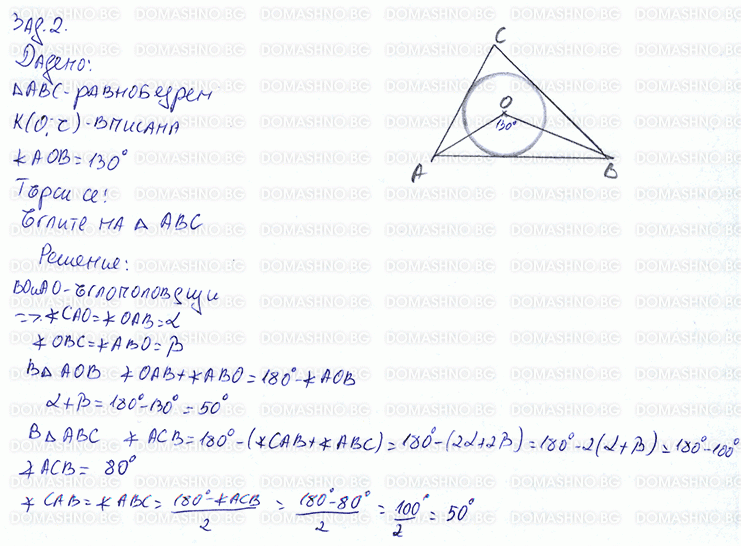 Зад. 2.
Дадено:
△ABC - равнобедрен
K(O; r) - вписана
∢AOB = 130°
Търси се:
Ъглите на △ ABC
Решение:
BO и AO - ъглополовящи
=> ∢CAO = ∢OAB = α
∢OBC = ∢ABO = β
В △ AOB ∢OAB + ∢ABO = 180° - ∢AOB
α + β = 180° - 130° = 50°
В △ ABC ∢ ACB = 180° - (∢CAB + ∢ABC) = 180° - (2α + 2β) = 180° - 2(α + β) = 180° - 100°
∢ACB = 80°
∢CAB = ∢ABC = (180° - ∢ACB)/2 = (180° - 80°)/2 = 100°/2 = 50°
C
O
130°
A B
DOMASHNO.BG